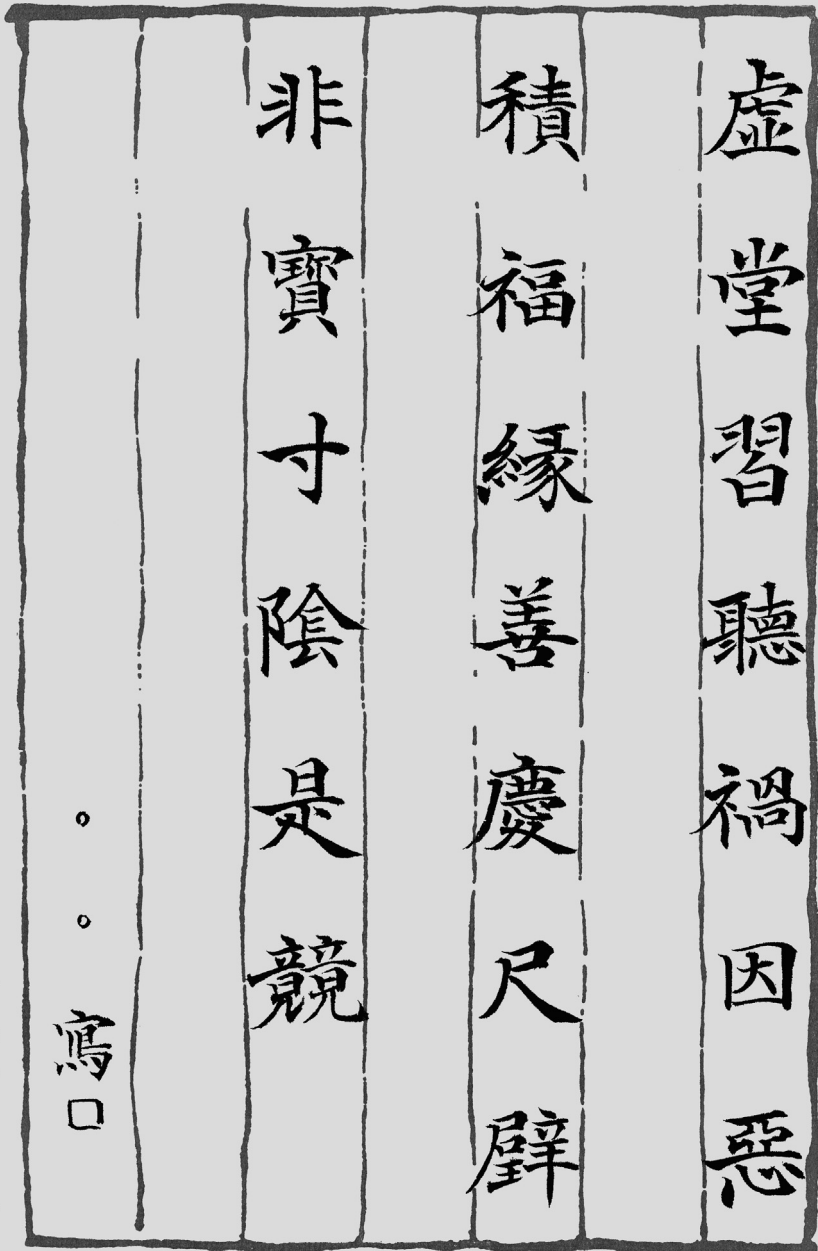 虛堂習聽禍因惡
積福緣善慶尺璧
非寶寸陰是競
。。寫口